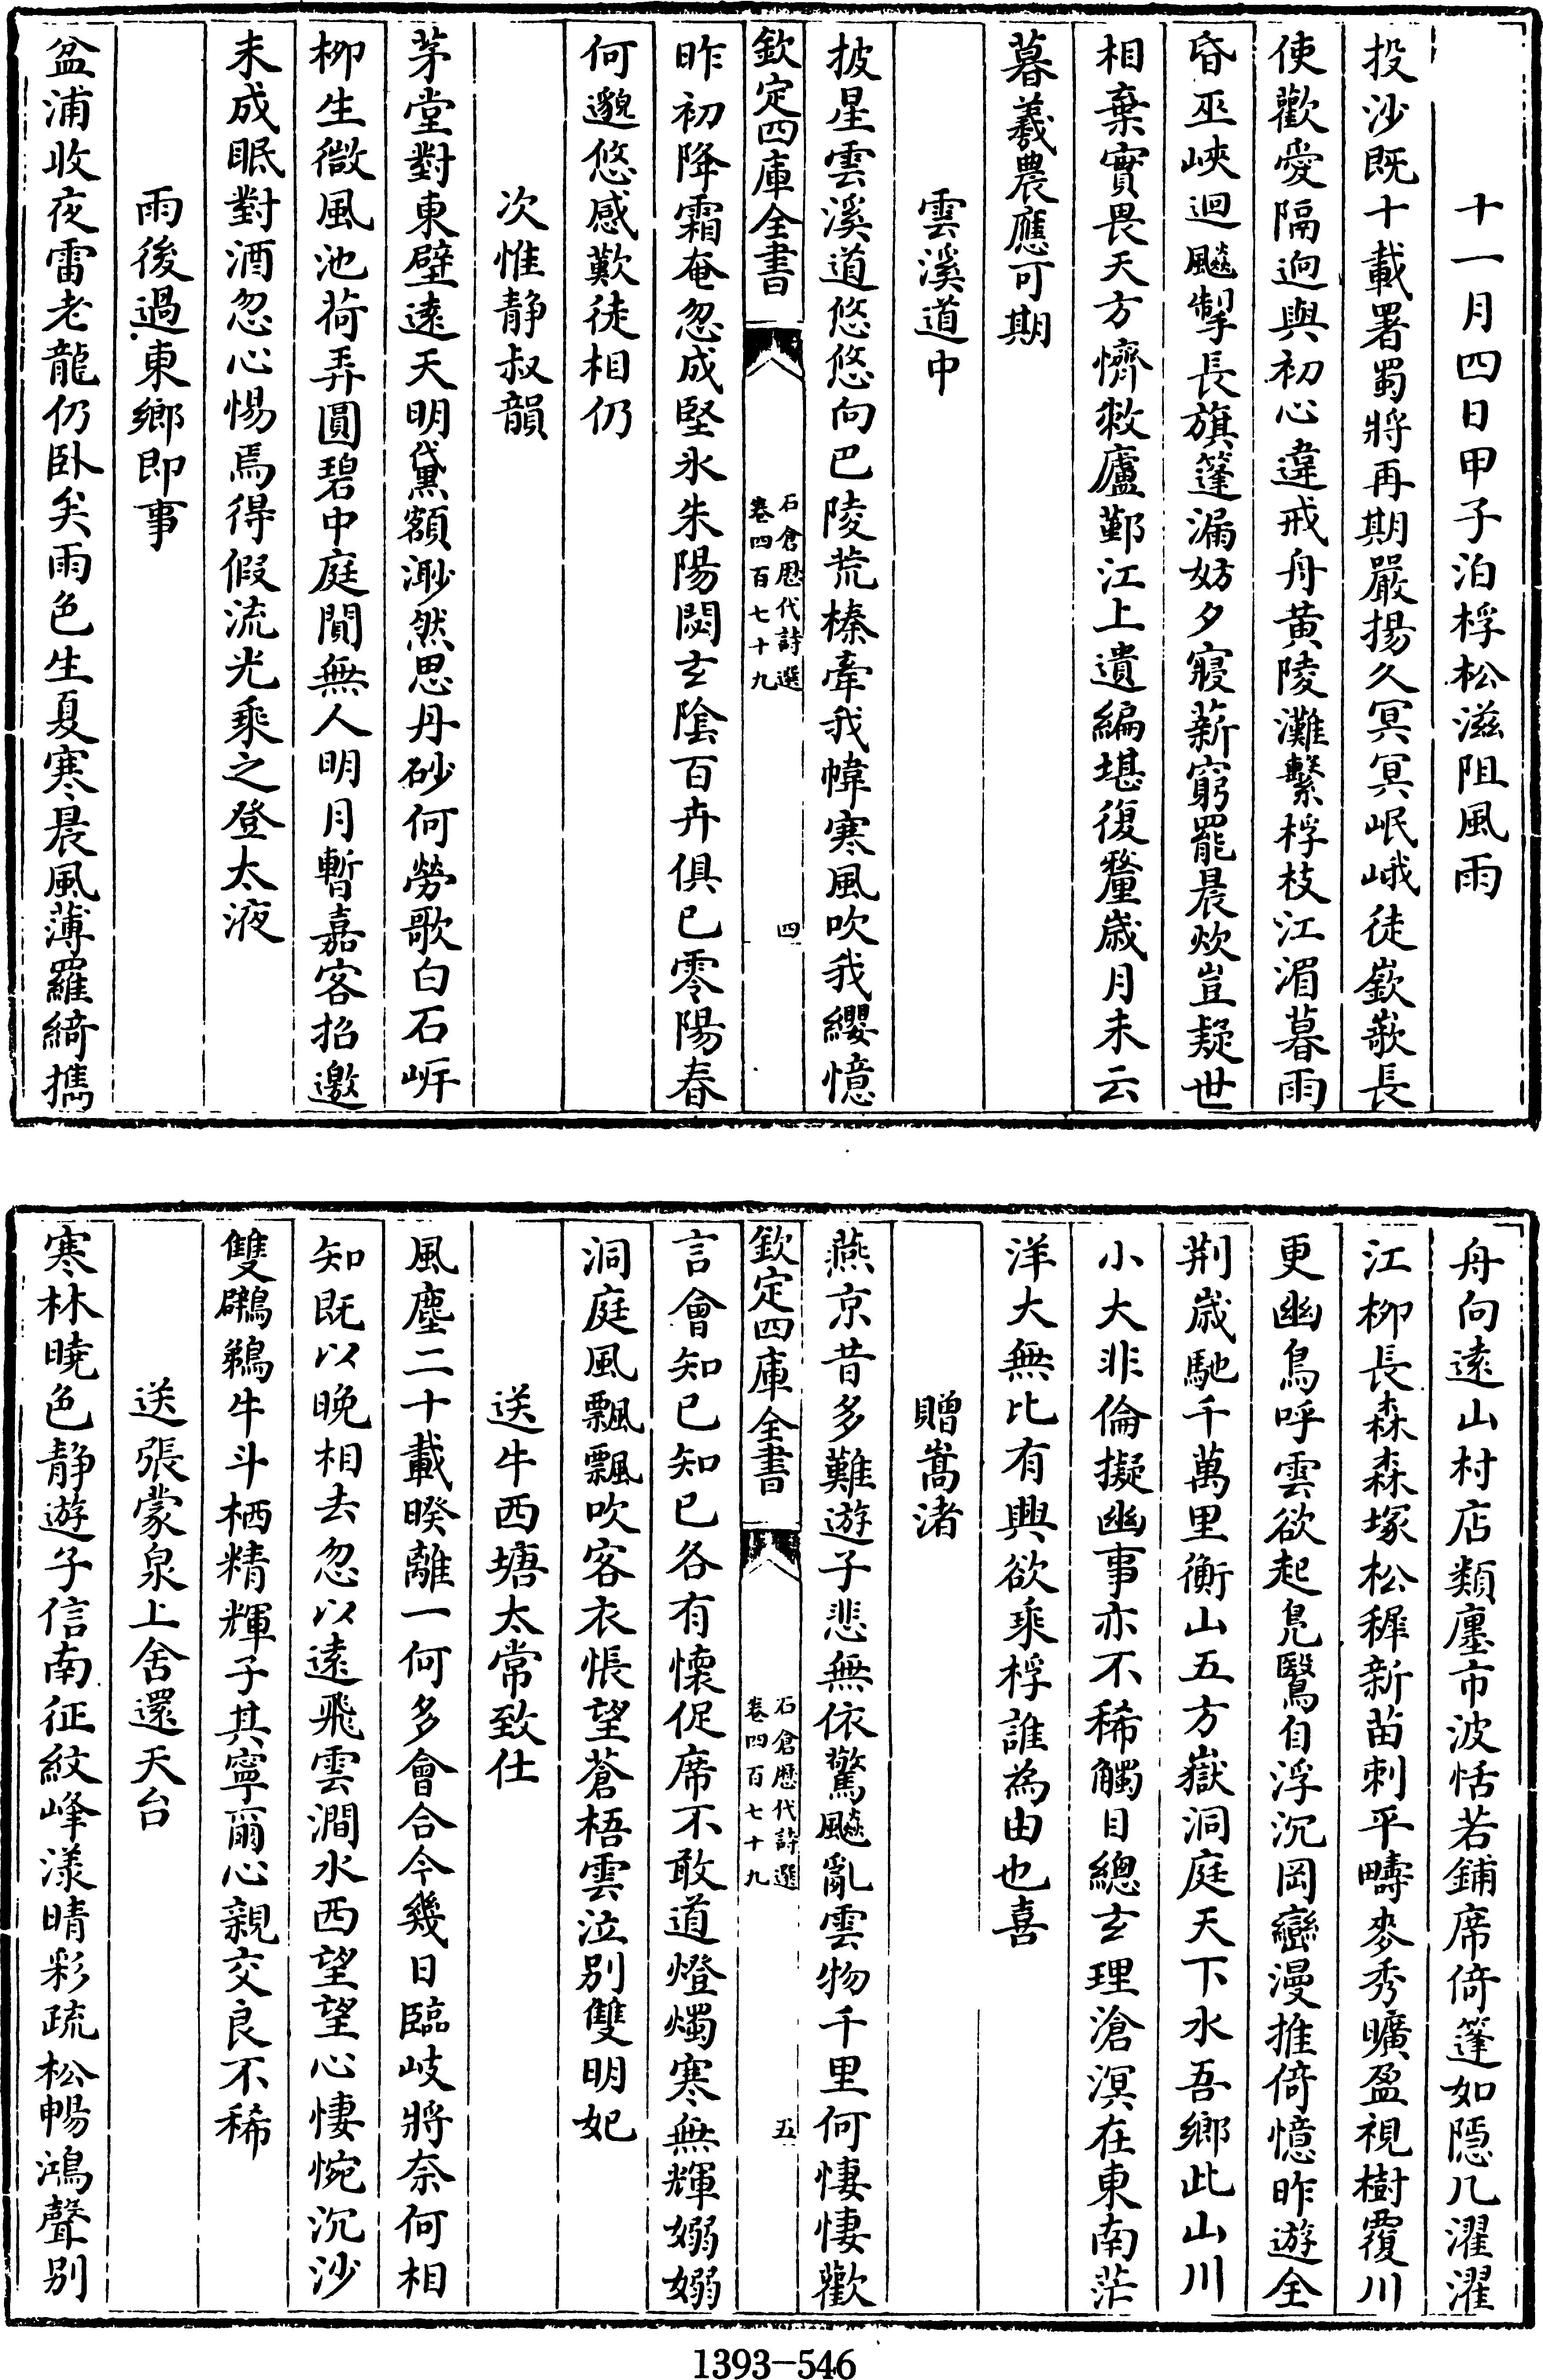 十一月四日甲子泊桴松滋阻風雨
投沙既十載署蜀將再期嚴揚久冥冥岷峨徒嶔嶔長
使歡愛隔迥與初心違戒舟黄陵灘繫桴枝江湄暮雨
昏巫峽迴飈掣長旗篷漏妨夕寢薪窮罷晨炊豈疑世
相棄實畏天方懠敕廬鄞江上遺編堪復釐歳月未云
暮羲農應可期
雲溪道中
披星雲溪道悠悠向巴陵荒榛牽我幃寒風吹我纓憶
欽定四庫全書
石倉歴代詩選
卷四百七十九
四
昨初降霜奄忽成堅氷朱陽閟玄隂百卉俱已零陽春
何邈悠感歎徒相仍
次惟静叔韻
茅堂對東壁逺天明黛額渺然思丹砂何勞歌白石岍
柳生微風池荷弄圓碧中庭閴無人明月暫嘉客招邀
未成眠對酒忽心惕焉得假流光乘之登太液
雨後過東鄉即事
盆浦收夜雷老龍仍卧矣雨色生夏寒晨風薄羅綺攜
舟向逺山村店類廛市波恬若鋪席倚篷如隠几濯濯
江柳長森森塚松穉新苗刺平疇麥秀曠盈視樹覆川
更幽鳥呼雲欲起鳬鷖自浮沉岡巒漫推倚憶昨遊全
荆歳馳千萬里衡山五方嶽洞庭天下水吾鄉此山川
小大非倫擬幽事亦不稀觸目總玄理滄溟在東南茫
洋大無比有興欲乘桴誰為由也喜
贈嵩渚
燕京昔多難遊子悲無依驚飈亂雲物千里何悽悽歡
欽定四庫全書
石倉歴代詩選
卷四百七十九
五
言會知已知已各有懷促席不敢道燈燭寒無輝嫋嫋
洞庭風飄飄吹客衣悵望蒼梧雲泣別雙明妃
送牛西塘太常致仕
風塵二十載暌離一何多會合今幾日臨岐將奈何相
知既以晩相去忽以逺飛雲澗水西望望心悽惋沉沙
雙鸊鵜牛斗栖精輝子其寧爾心親交良不稀
送張蒙泉上舍還天台
寒林曉色静遊子信南征紋峰漾晴彩疏松暢鴻聲别
1393-546